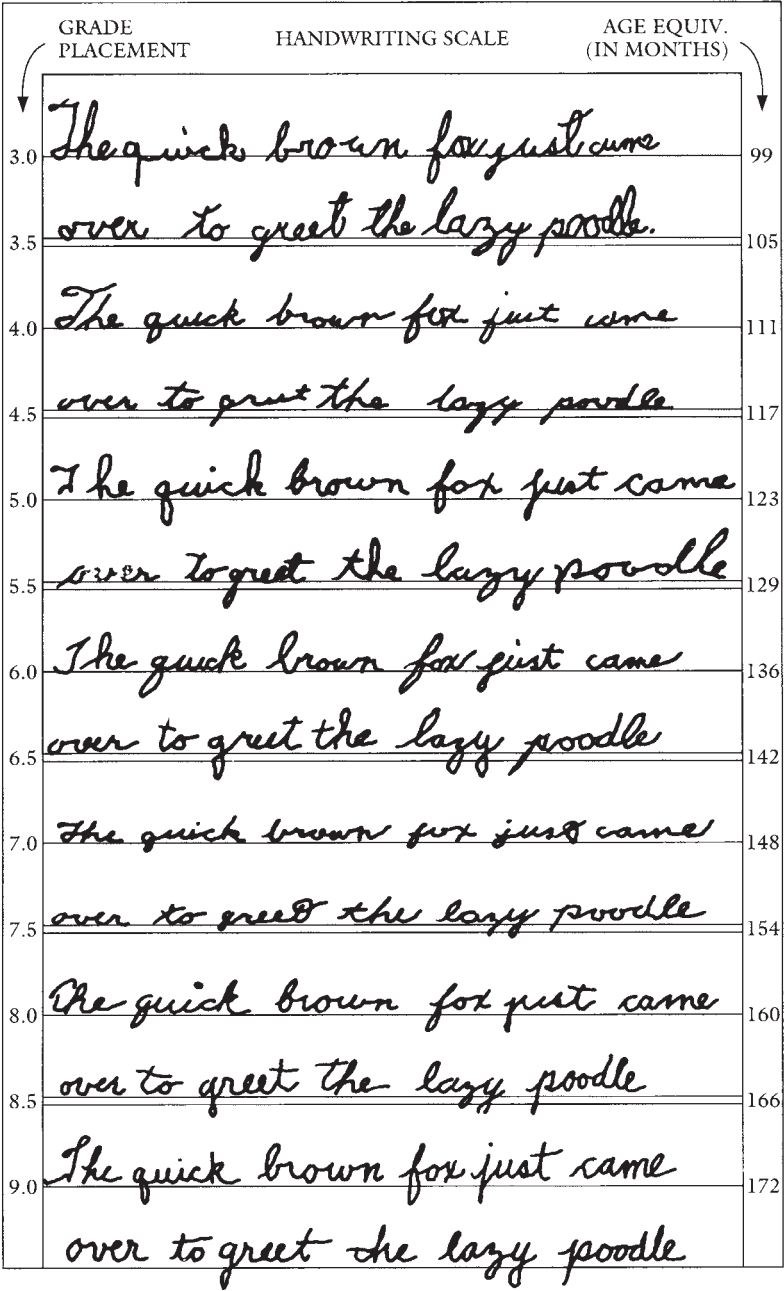 GRADE PLACEMENT
HANDWRITING SCALE
AGE EQUIV. (IN MONTHS)
3.0 The quick brown fox just came 99
3.5 over to greet the lazy poodle. 105
4.0 The quick brown fox just came 111
4.5 over to greet the lazy poodle 117
5.0 The quick brown fox just came 123
5.5 over to greet the lazy poodle 129
6.0 The quick brown fox just came 136
6.5 over to greet the lazy poodle 142
7.0 The quick brown fox just came 148
7.5 over to greet the lazy poodle 154
8.0 The quick brown fox just came 160
8.5 over to greet the lazy poodle 166
9.0 The quick brown fox just came 172
over to greet the lazy poodle